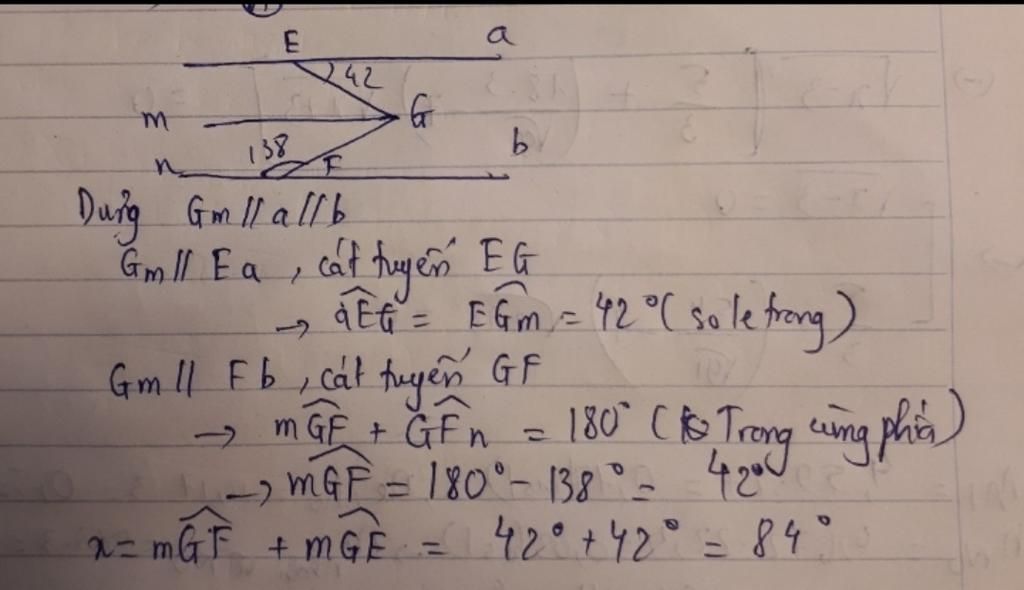 E a
42
m G
138 b
n F
Dựng Gm // a // b
Gm // Ea , cát tuyến EG
→ aEG = EGm = 42° ( so le trong )
Gm // Fb , cát tuyến GF
→ mGF + GFn = 180° ( Trong cùng phía )
→ mGF = 180° - 138° = 42°
x = mGF + mGE = 42° + 42° = 84°